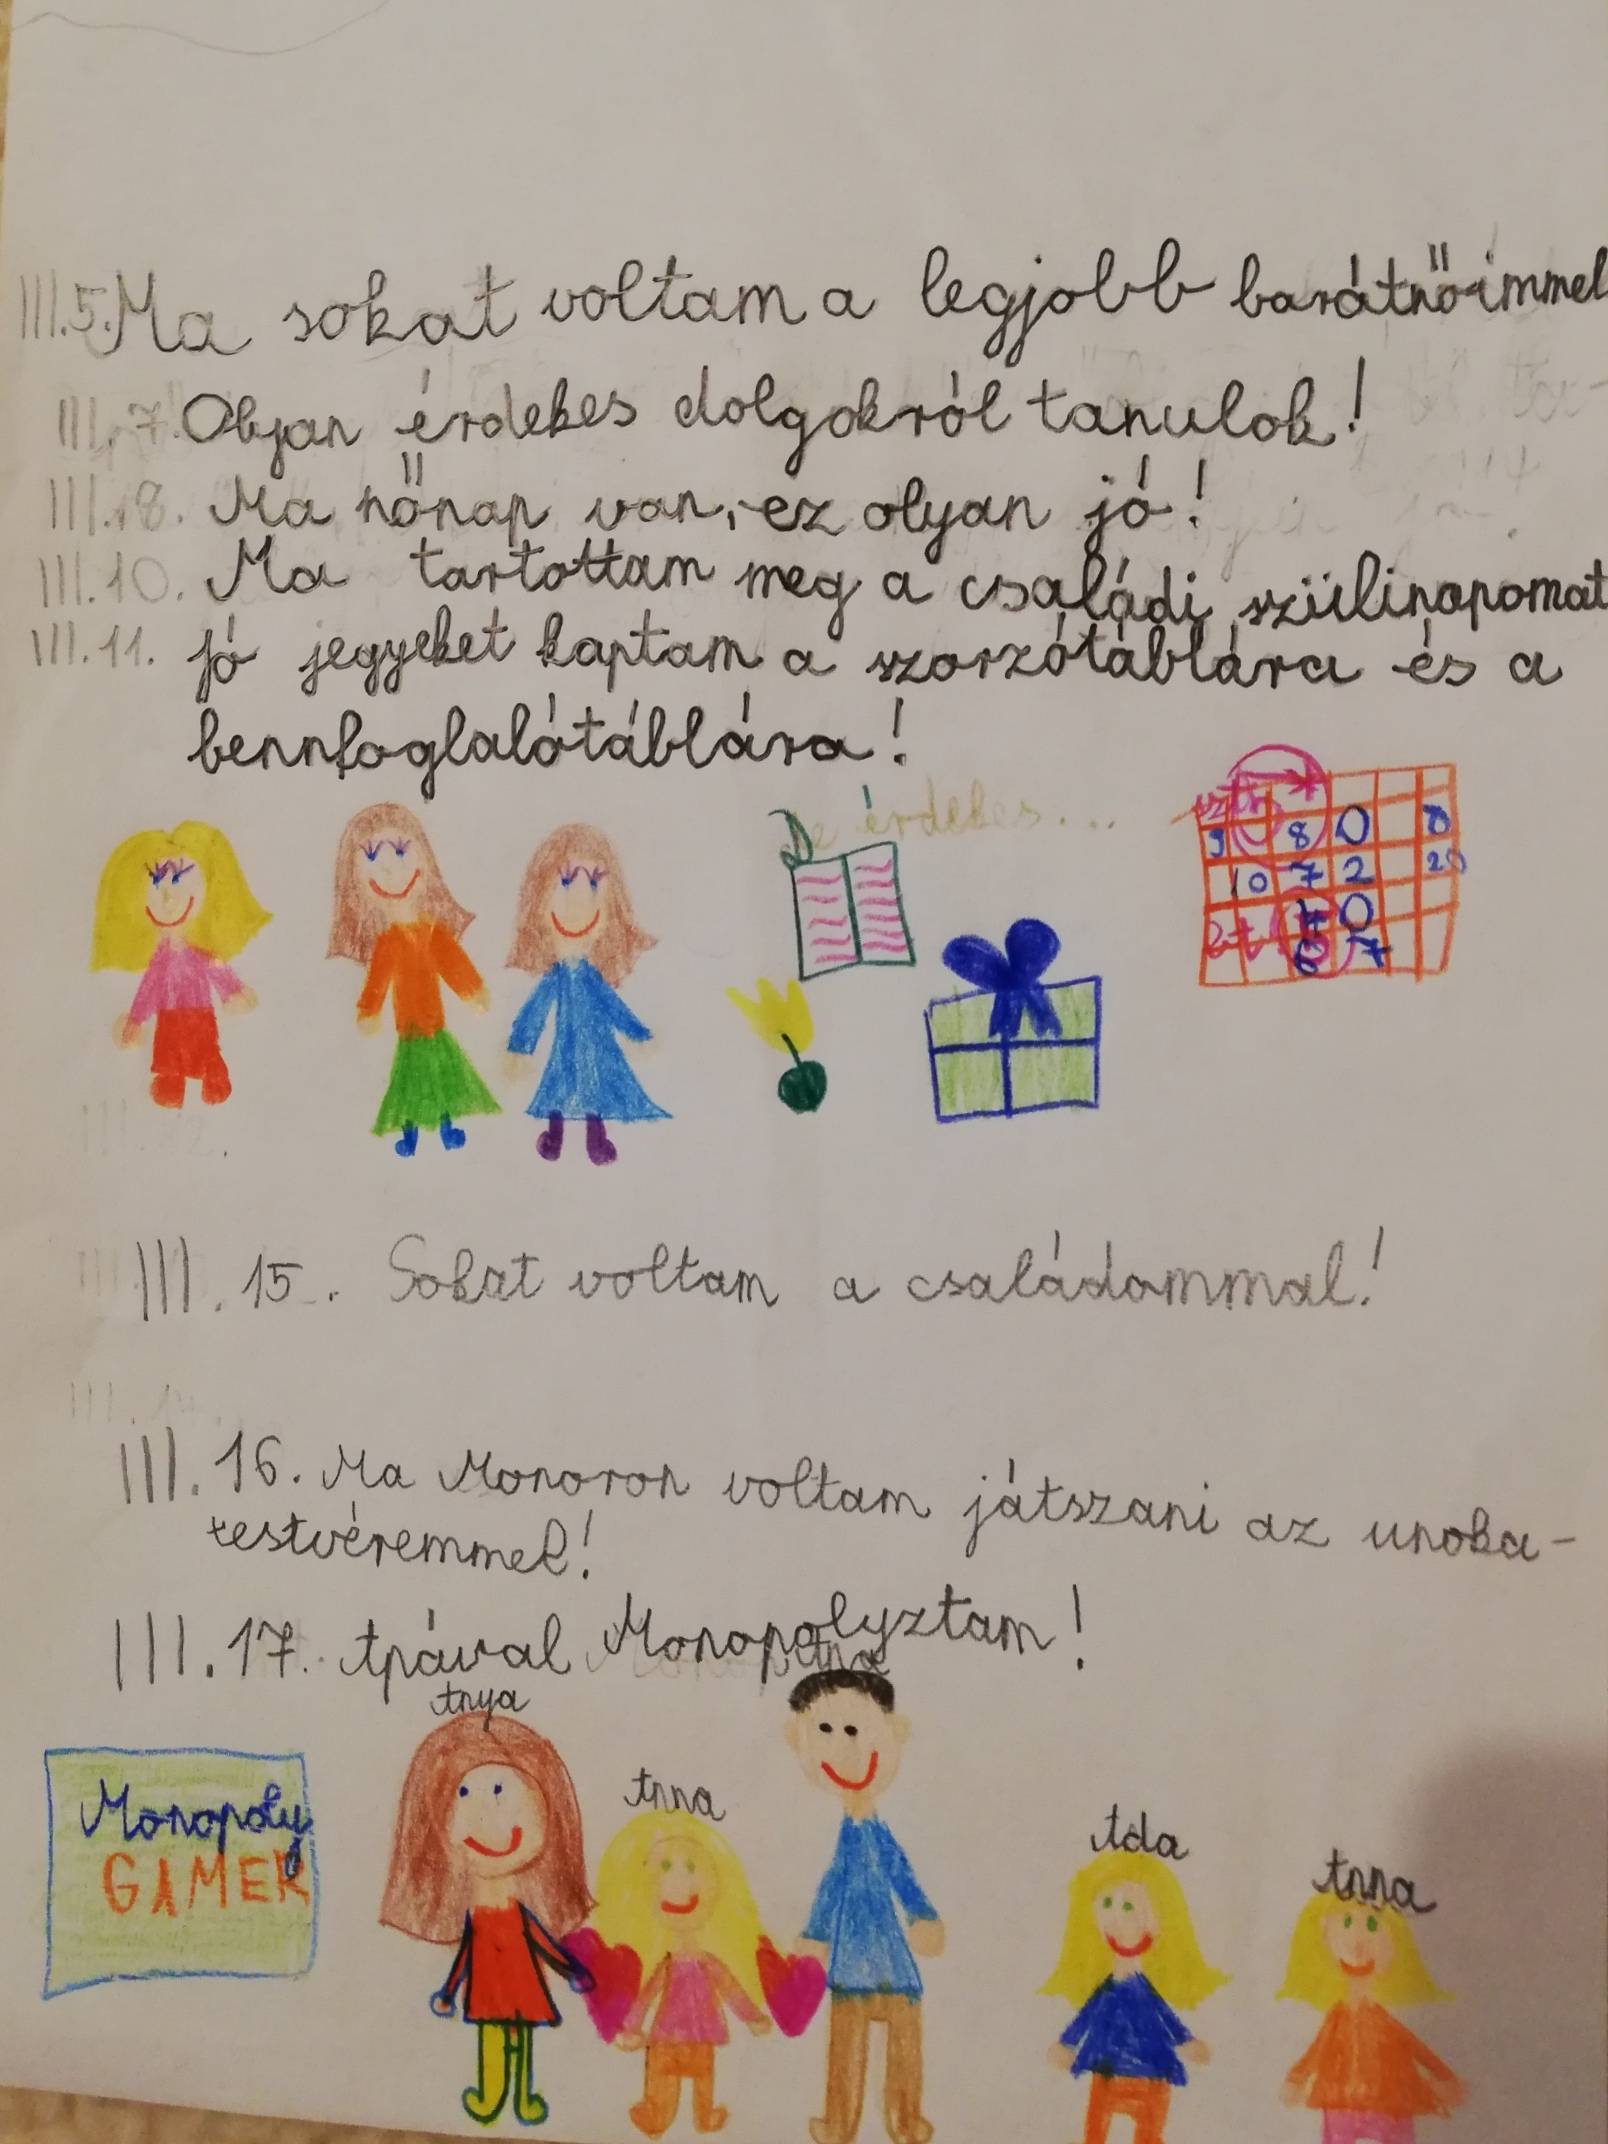 III.5. Ma sokat voltam a legjobb barátnőimmel
III.7. Olyan érdekes dolgokról tanulok!
III.8. Ma nőnap van, ez olyan jó!
III.10. Ma tartottam meg a családi szülinapomat
III.11. Jó jegyeket kaptam a szorzótáblára és a
bennfoglalótáblára!
De érdekes...
9 8 0 8
10 7 2 20
4 0
6 7
III.15. Sokat voltam a családommal!
III.16. Ma Monoron voltam játszani az unoka-
testvéremmel!
III.17. Apával Monopolyztam!
Anya
Apa
Anna
Monopoly
GAMER
Ada
Anna